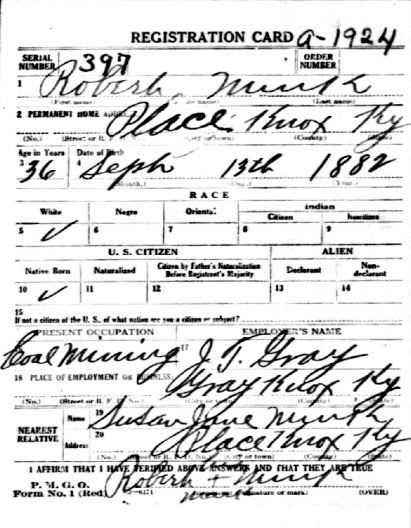 REGISTRATION CARD A-1924
SERIAL NUMBER 397 ORDER NUMBER
1 Robert
(First name) (Last name)
2 PERMANENT HOME Place Knox Ky
(No.) (Street or R. F. (City or town) (County) (State)
Age in Years Date of Birth
3 36 4 Seph 13th 1882
(Month.) (Day.) (Year.)
RACE
White Negro Oriental Indian
Citizen Noncitizen
5 ✓ 6 7 8 9
U. S. CITIZEN ALIEN
Native Born Naturalized Citizen by Father's Naturalization Before Registrant's Majority Declarant Non-declarant
10 ✓ 11 12 13 14
15
If not a citizen of the U. S., of what nation are you a citizen or subject?
PRESENT OCCUPATION EMPLOYER'S NAME
Coal Mining 17 J. T. Gray
18 PLACE OF EMPLOYMENT OR BUSINESS:
Gray Knox Ky
(No.) (Street or R. F. D. (City or town) (County) (State)
NEAREST RELATIVE
Name 19 Susan Jane
Address 20 Place Knox Ky
(No.) (County) (State)
I AFFIRM THAT I HAVE VERIFIED ABOVE ANSWERS AND THAT THEY ARE TRUE
P. M. G. O.
Form No. 1 (Red) Robert +
mark (Signature or mark) (OVER)